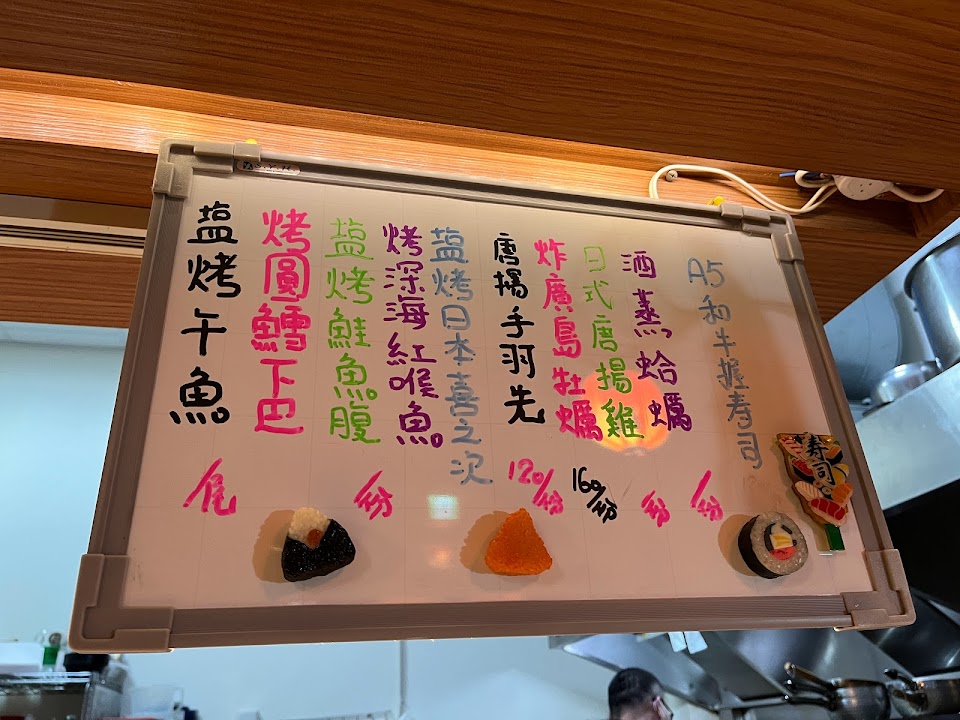 A5和牛握寿司
酒蒸蛤蠣
日式唐揚雞
炸廣島牡蠣
唐揚手羽先
塩烤日本喜之次
烤深海紅喉魚
塩烤鮭魚腹
烤圓鱈下巴
塩烤午魚
/份
/份
160/份
120/份
/份
/尾
寿司